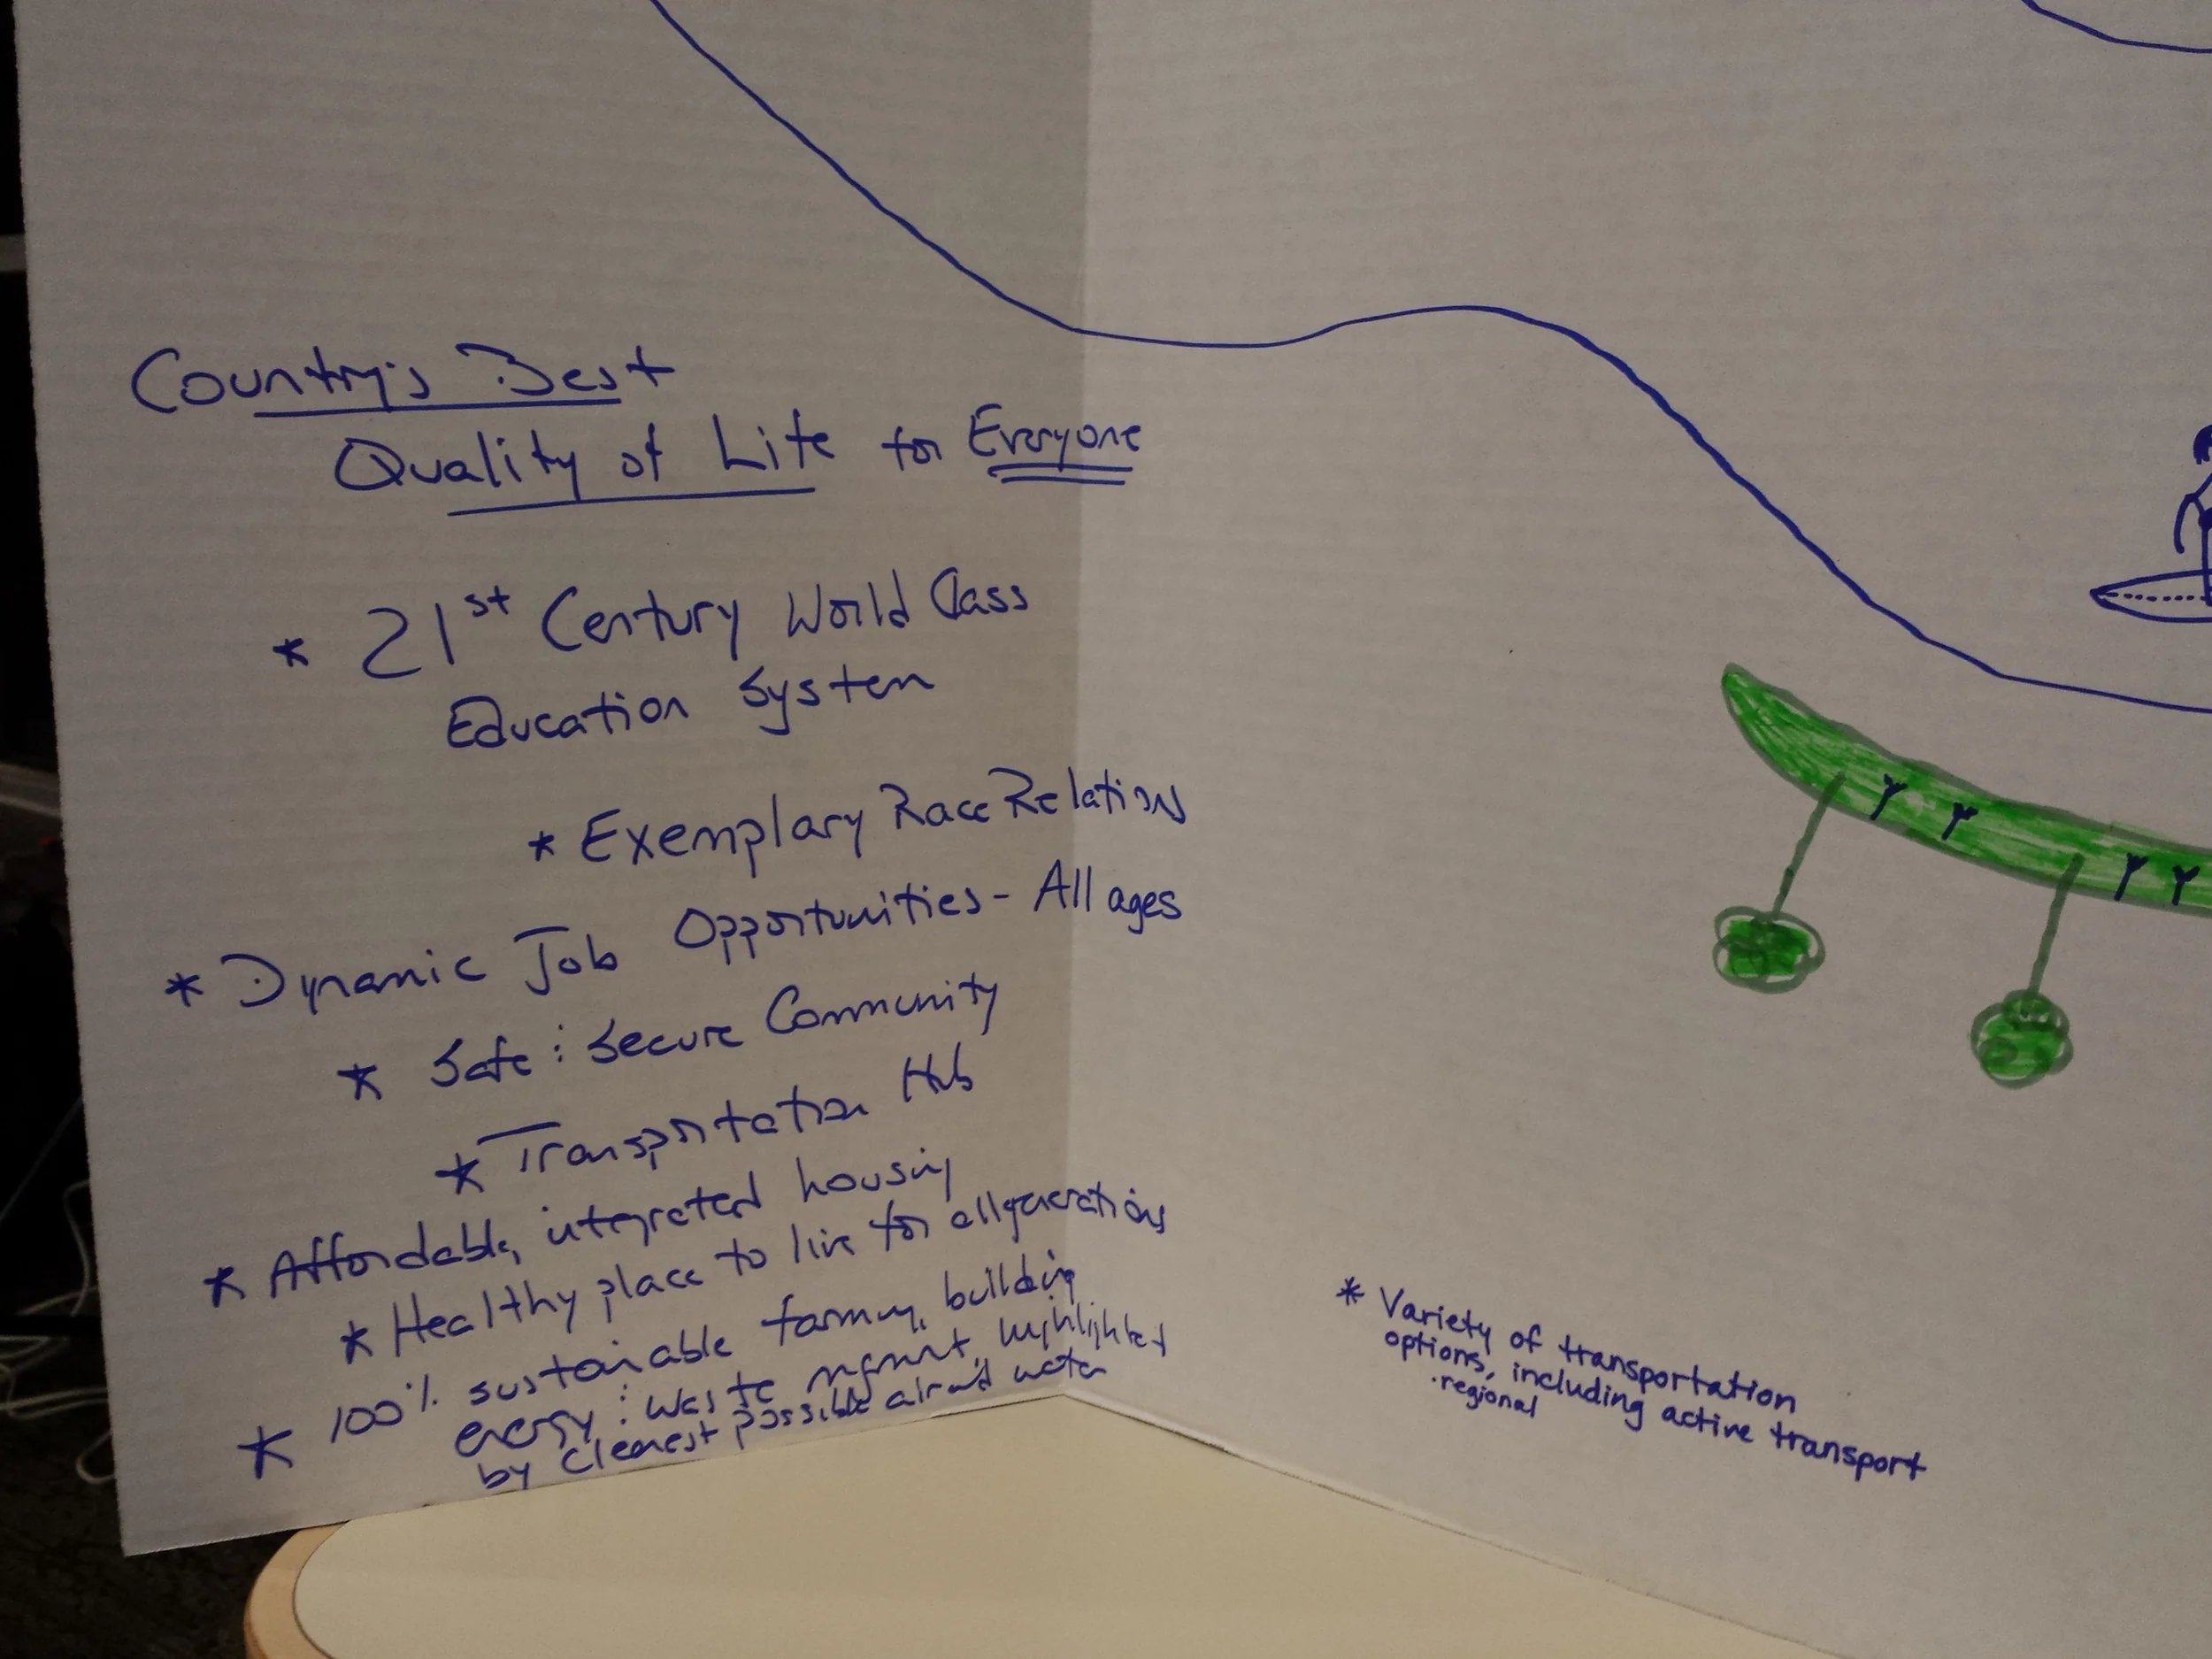 Country's Best
Quality of Life for Everyone
* 21st Century World Class
Education System
* Exemplary Race Relations
* Dynamic Job Opportunities - All ages
* Safe & Secure Community
* Transportation Hub
* Affordable, integrated housing
* Healthy place to live for all generations
* 100% sustainable farming, building
energy & waste mgmnt, highlighted
by cleanest possible air and water
* Variety of transportation
options, including active transport
·regional